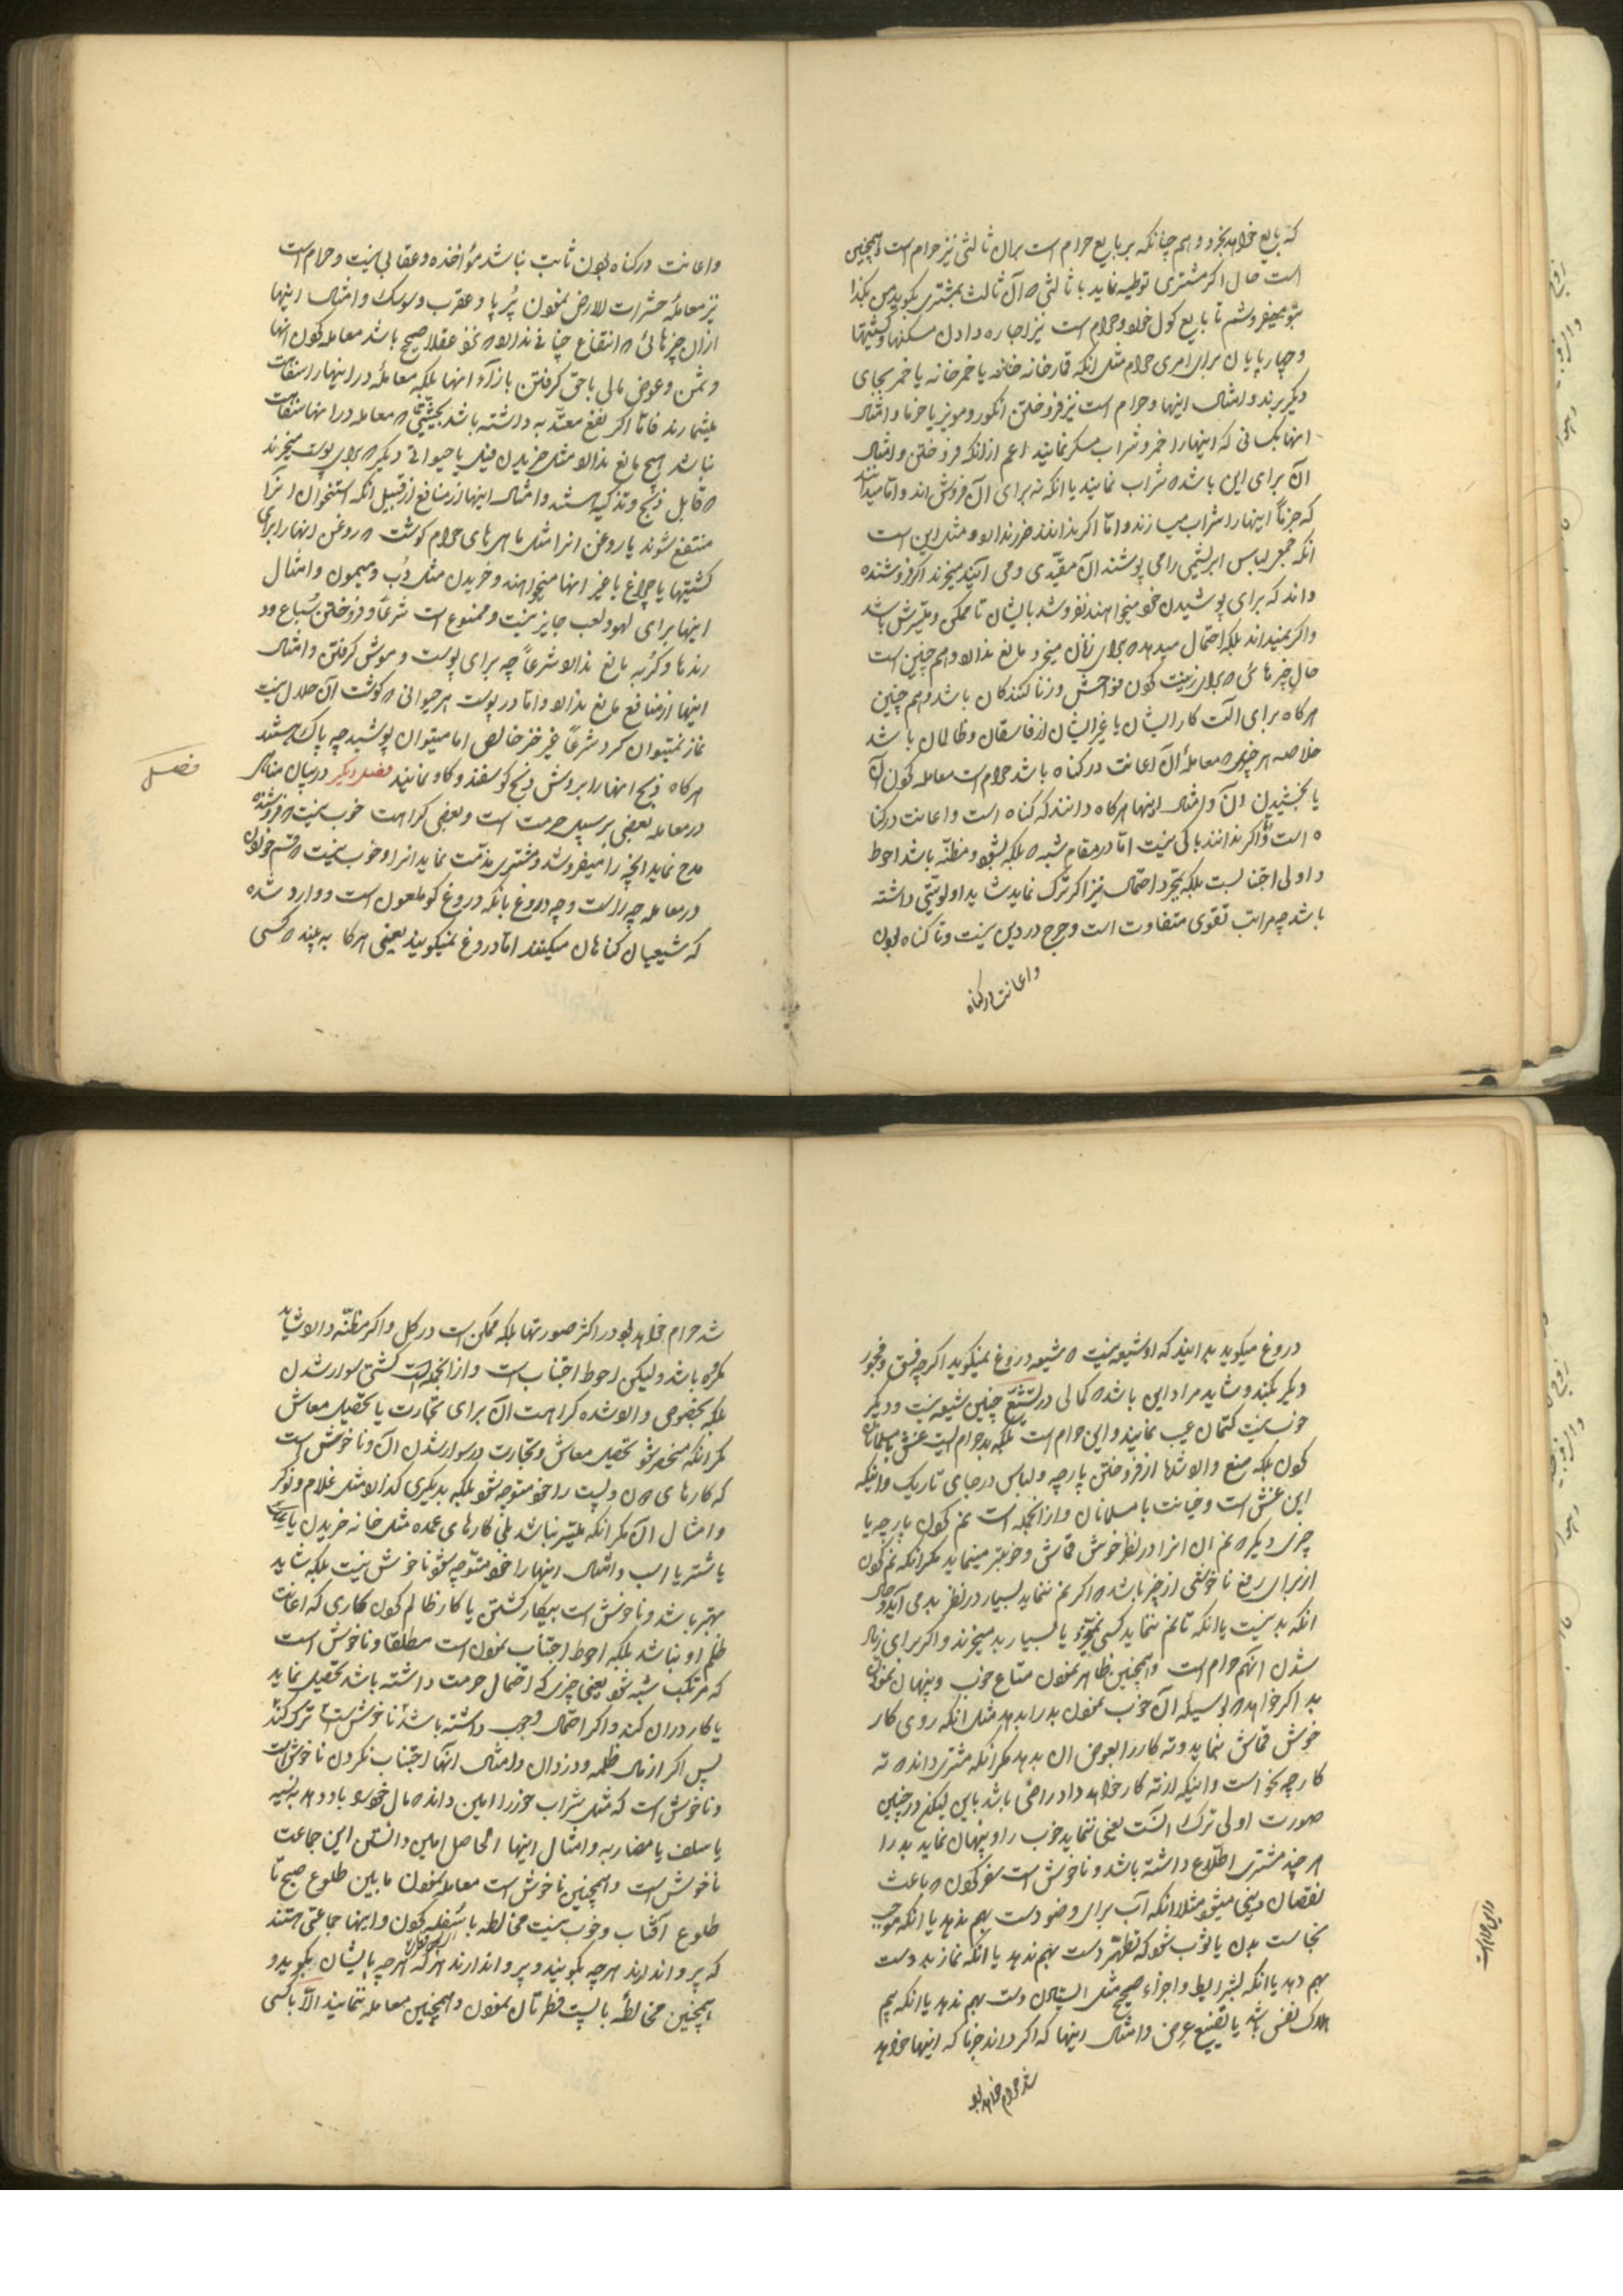 که بایع خواهد بخرد و همچنانکه بر بایع حرام است بران ثالثی نیز حرام است و همچنین
است حال اگر مشتری توطیه نماید با ثالثی که آن ثالث بمشتری بکوید من بکذا
بتو میفروشم تا بایع کول خورد و حرام است نیز اجاره دادن مسکنها و کشتیها
و چارپایان برای امری حرام مثل انکه قمارخانه یا خمرخانه یا خمر بجای
دیکر برند و امثال اینها و حرام است نیز فروختن انکور و مویز یا خرما و امثال
اینها بکسانی که اینها را خمر و شراب مسکر نمایند اعم از انکه فروختن و امثال
آن برای این باشد که شراب نمایند یا انکه نه برای آن فروش اند و اما میدانند
که جزماً اینها را شراب میسازند و اما اکر ندانند ضرر ندارد و مثل این است
انکه جمعی لباس ابریشمی را می پوشند آن مقیدی و می آیند میخرند اکر فروشنده
داند که برای پوشیدن خود میخواهند نفروشد بایشان تا ممکن و میسرش باشد
و اکر نمیداند بلکه احتمال میدهد که برای زنان میخرد مانع ندارد و هم چنین است
حال چیزهائی که برای زینت کردن فواحش و زناکنندکان باشد و هم چنین
هرکاه برای آلت کار ایشان یا غیر ایشان از فاسقان و ظالمان باشد
خلاصه هر چیزی که معامله آن اعانت در کناه باشد حرام است معامله کردن آن
یا بخشیدن آن و امثال اینها هرکاه دانند که کناه است و اعانت در کنا
ه است و اکر ندانند باکی نیست اما در مقام شبهه بلکه شبهه و مظنه باشد احوط
و اولی اجتنابست بلکه بمجرد احتمال نیز اکر ترک نماید شاید اولویتی داشته
باشد چه مراتب تقوی متفاوت است و حرج در دین نیست و تا کناه بودن
و اعانت در کناه
و اعانت در کناه بودن ثابت نباشد مؤاخذه و عقابی نیست و حرام است
نیز معامله حشرات الارض نمودن پُرپا و عقرب و سوسک و امثال اینها
از ان چیزهائی که انتفاع چنانی ندارد که نحو عقلا صحیح باشد معامله کردن انها
و ثمن و عوض مالی یا حق کرفتن بازاء انها بلکه معامله در اینها را سفاهت
میشمارند فاما اکر نفع معتد به داشته باشد بحیثیتی که معامله در انها سفاهت
نباشد هیچ مانع ندارد مثل خریدن فیل یا حیوانی دیکر که برای پوست میخرند
که قابل ذبح و تذکیه هستند و امثال اینها از منافع از قبیل انکه استخوان انرا
منتفع شوند یا روغن انرا مثل ماهی های حرام کوشت که روغن انها را برای
کشتیها یا چراغ یا غیر انها میخواهند و خریدن مثل دُب و میمون و امثال
اینها برای لهو و لعب جایز نیست و ممنوع است شرعاً و فروختن سُباع و در
رندها و کربه مانع ندارد شرعاً چه برای پوست و موش کرفتن و امثال
اینها از منافع مانع ندارد و اما در پوست هر حیوانی که کوشت آن حلال نیست
نماز نمیتوان کرد شرعاً غیر خز خالص اما میتوان پوشید چه پاک هستند
هرکاه ذبح انها را بروش ذبح کوسفند و کاو نمایند فصل دیکر در بیان مناهی
در معامله بعضی بر سبیل حرمت است و بعضی کراهت خوب نیست که فروشنده
مدح نماید انچه را میفروشد و مشتری مذمت نماید انرا و خوب نیست که قسم خوردن
در معامله چه راست و چه دروغ بانکه دروغ کو ملعون است و وارد شده
که شیعیان کناهان میکنند اما دروغ نمیکویند یعنی هرکاه به بیند که کسی
فصل
دروغ میکوید بدانید که او شیعه نیست که شیعه دروغ نمیکوید اکرچه فسق و فجور
دیکر بکند و شاید مراد این باشد که کمالی در تشیع چنین شیعه نیست و دیکر
خوب نیست کتمان عیب نمایند و این حرام است بلکه بد حرام است غش با مسلمانان
کردن بلکه منع وارد شده از فروختن پارچه و لباس در جای تاریک و اینکه
این غش است و خیانت با مسلمانان و از انجمله است نم کردن پارچه یا
چیزی دیکر که نم ان انرا در نظر خوش قماش و خوبتر مینماید مکر انکه نم کردن
از برای رفع ناخوشی از چیز باشد که اکر نم ننماید بسیار در نظر بد می آید و حال
انکه بد نیست یا انکه تا نم ننماید کسی نمیخرد یا بسیار بد میخرند و اکر برای زیاد
شدن انهم حرام است و همچنین ظاهر نمودن متاع خوب و پنهان نمودن
بد اکر خواهد که بوسیله آن خوب نمودن بد را بدهد مثل انکه روی کار
خوش قماش بنماید و ته کار را بعوض ان بدهد مکر انکه مشتری داند که ته
کار چه نحو است و اینکه از ته کار خواهد داد راضی باشد باین لیکن در چنین
صورت اولی ترک انست یعنی ننماید خوب را و پنهان نماید بد را
هر چند مشتری اطلاع داشته باشد و ناخوش است سفر کردن که باعث
نقصان دینی میشود مثلا انکه آب برای وضو دست بهم ندهد یا انکه موجب
نجاست بدن یا ثوب شود که تطهر دست بهم ندهد یا انکه نماز بد دست
بهم دهد یا انکه بشرایط و اجزاء صحیح مثل ایستادن دست بهم ندهد یا انکه بیم
هلاک نفس باشد یا تضییع عرض و امثال اینها که اکر داند جزماً که اینها خواهد
شد حرام خواهد بود
شد حرام خواهد بود در اکثر صورتها بلکه ممکن است در کل و اکر مظنه دارد شاید
مکروه باشد ولیکن احوط اجتناب است و از انجمله است کشتی سوار شدن
بلکه بخصوص وارد شده کراهت آن برای تجارت یا تحصیل معاش
مکر انکه منحصر شود تحصیل معاش و تجارت در سوار شدن آن و ناخوش است
که کارهای دون و پست را خود متوجه شود بلکه بدیکری کذارد مثل غلام و نوکر
و امثال آن مکر انکه میسر نباشد بلی کارهای عمده مثل خانه خریدن یا
یا شتر یا اسب و امثال اینها را خود متوجه شود ناخوش نیست بلکه شاید
بهتر باشد و ناخوش است بیکار کشتن یا کار ظالم کردن کاری که اعانت
ظلم او نباشد بلکه احوط اجتناب نمودن است مطلقا و ناخوش است
که مرتکب شبهه شود یعنی چیزی که احتمال حرمت داشته باشد تحصیل نماید
یا کار دران کند و اکر احتمال وجوب داشته باشد ناخوش است ترک کند
پس اکر از مال ظلمه و دزدان و امثال انها اجتناب نکردن ناخوش است
و ناخوش است که مثل شراب خور را امین داند که مال خود را باو دهد به نسیه
یا سلف یا مضاربه و امثال اینها الحاصل امین دانستن این جماعت
ناخوش است و همچنین ناخوش است معامله نمودن مابین طلوع صبح تا
طلوع آفتاب و خوب نیست مخالطه با سَفَله کردن و اینها جماعتی هستند
که پروا ندارند هر چه بکویند و پروا ندارند هرکه هرچه بایشان بکوید و
همچنین مخالطه با پست فطرتان نمودن و همچنین معامله ننمایند الّا با کسی